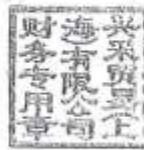 兴米贸易(上
海)有限公司
财务专用章